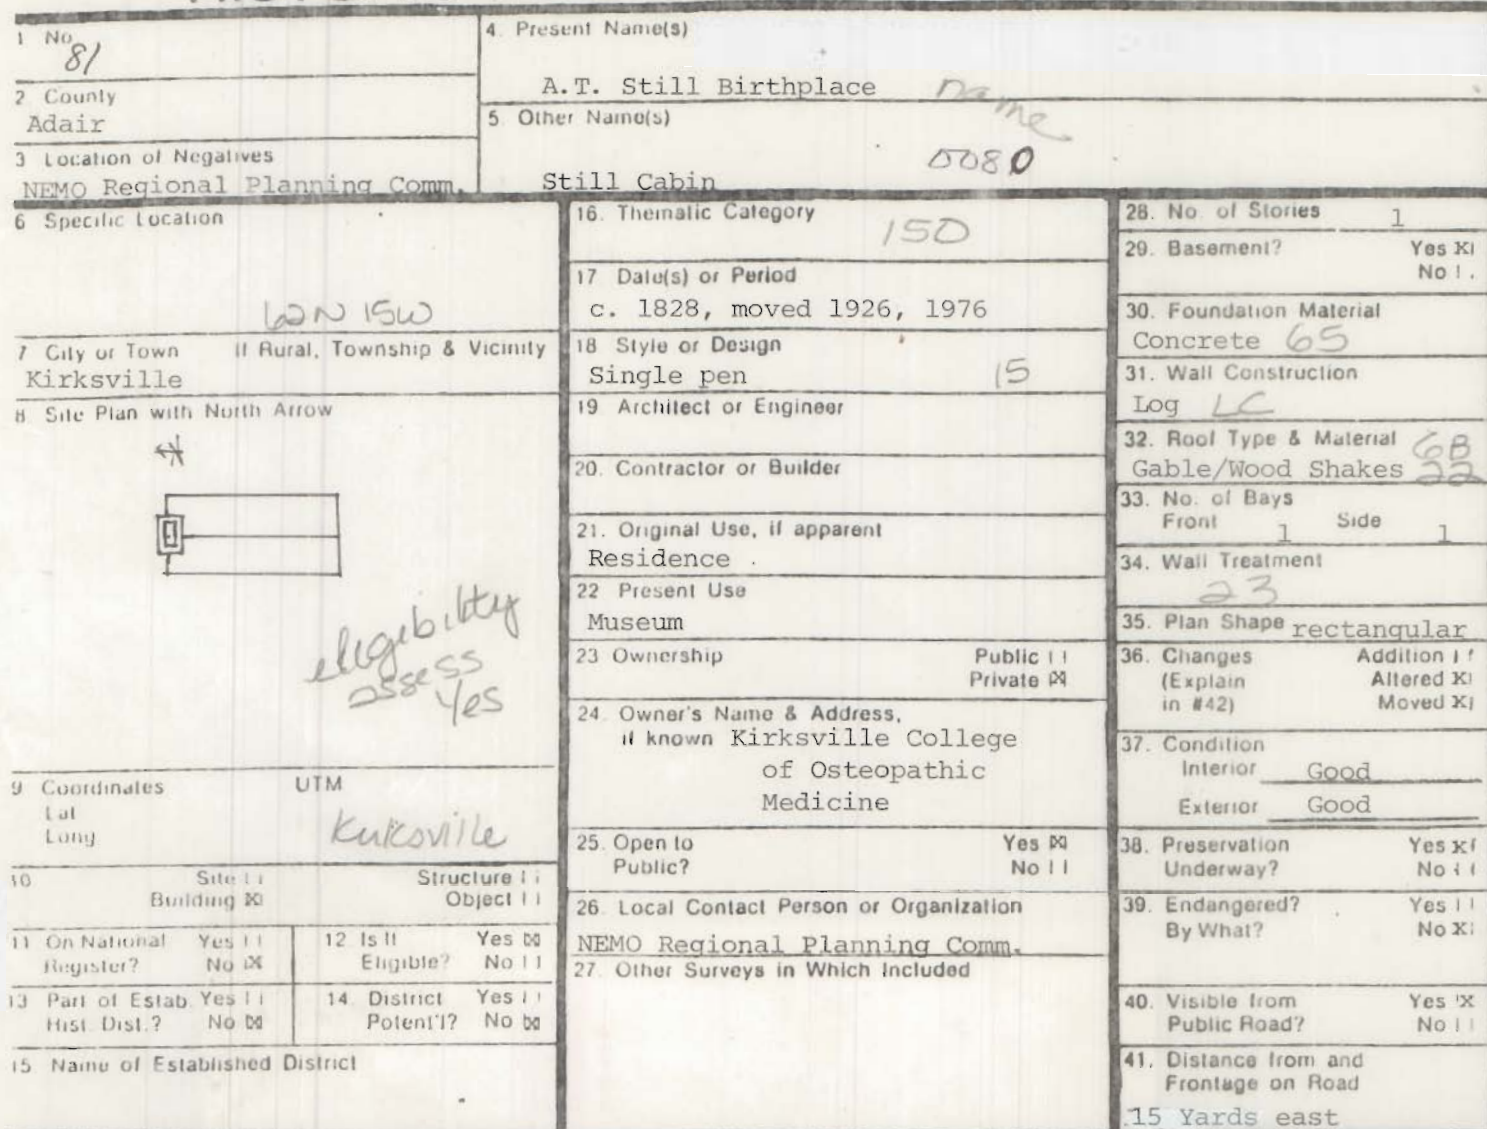 1 No.
81
2 County
Adair
3 Location of Negatives
NEMO Regional Planning Comm.
4. Present Name(s)
A.T. Still Birthplace
name
5 Other Name(s)
0080
Still Cabin
6 Specific Location
62N 15W
7 City or Town If Rural, Township & Vicinity
Kirksville
8 Site Plan with North Arrow
eligibility
assess
Yes
9 Coordinates UTM
Lat
Long
Kirksville
10 Site | | Structure | |
Building X Object | |
11 On National Register? Yes | | No X
12 Is It Eligible? Yes X No | |
13 Part of Estab. Hist. Dist.? Yes | | No X
14 District Potent'l? Yes | | No X
15 Name of Established District
16. Thematic Category
150
17 Date(s) or Period
c. 1828, moved 1926, 1976
18 Style or Design
Single pen 15
19 Architect or Engineer
20. Contractor or Builder
21. Original Use, if apparent
Residence
22 Present Use
Museum
23 Ownership Public | |
Private X
24 Owner's Name & Address,
if known Kirksville College
of Osteopathic
Medicine
25. Open to Yes X
Public? No | |
26. Local Contact Person or Organization
NEMO Regional Planning Comm.
27. Other Surveys in Which Included
28. No. of Stories 1
29. Basement? Yes X
No | |
30. Foundation Material
Concrete 65
31. Wall Construction
Log LC
32. Roof Type & Material GB
Gable/Wood Shakes 22
33. No. of Bays
Front 1 Side 1
34. Wall Treatment
23
35. Plan Shape rectangular
36. Changes Addition | |
(Explain Altered X
in #42) Moved X
37. Condition
Interior Good
Exterior Good
38. Preservation Yes X
Underway? No | |
39. Endangered? Yes | |
By What? No X
40. Visible from Yes X
Public Road? No | |
41. Distance from and
Frontage on Road
15 Yards east